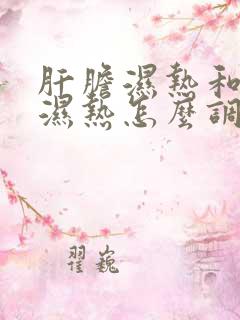 肝膽濕熱和
濕熱怎麼調
翟巍